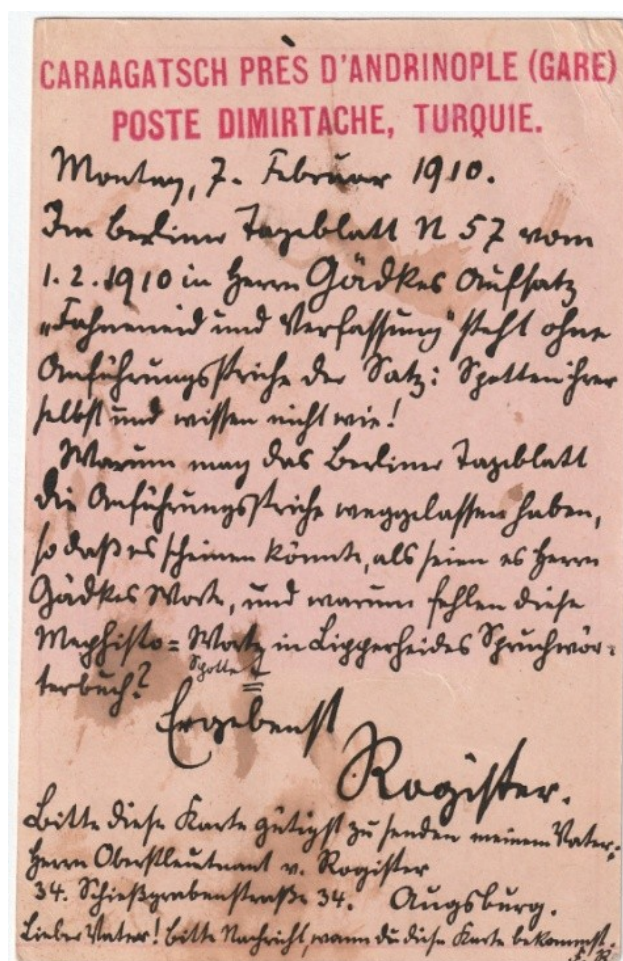 CARAAGATSCH PRÈS D'ANDRINOPLE (GARE)
POSTE DIMIRTACHE, TURQUIE.
Montag, 7. Februar 1910.
Im Berliner Tageblatt N 57 vom
1.2.1910 in Herrn Gädkes Aufsatz
„Fahneneid und Verfassung" steht ohne
Anführungsstriche der Satz: Spotten ihrer
selbst und wissen nicht wie!
Warum mag das Berliner Tageblatt
die Anführungsstriche weggelassen haben,
so daß es scheinen könnte, als seien es Herrn
Gädkes Worte, und warum fehlen diese
Mephisto=Worte in Lipperheides Spruchwör=
Spotte
terbuch?
Ergebenst
Rogister.
Bitte diese Karte gütigst zu senden meinem Vater:
Herrn Oberstleutnant v. Rogister
34. Schießgrabenstraße 34. Augsburg.
Lieber Vater! bitte Nachricht, wann du diese Karte bekommst.
F R